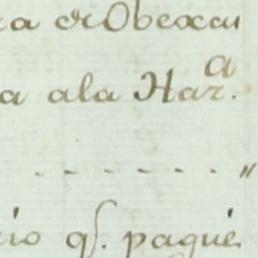 ra de Obexas
a a la Haz.ª
. - - - - - . . "
rio q.ⁿ pagué